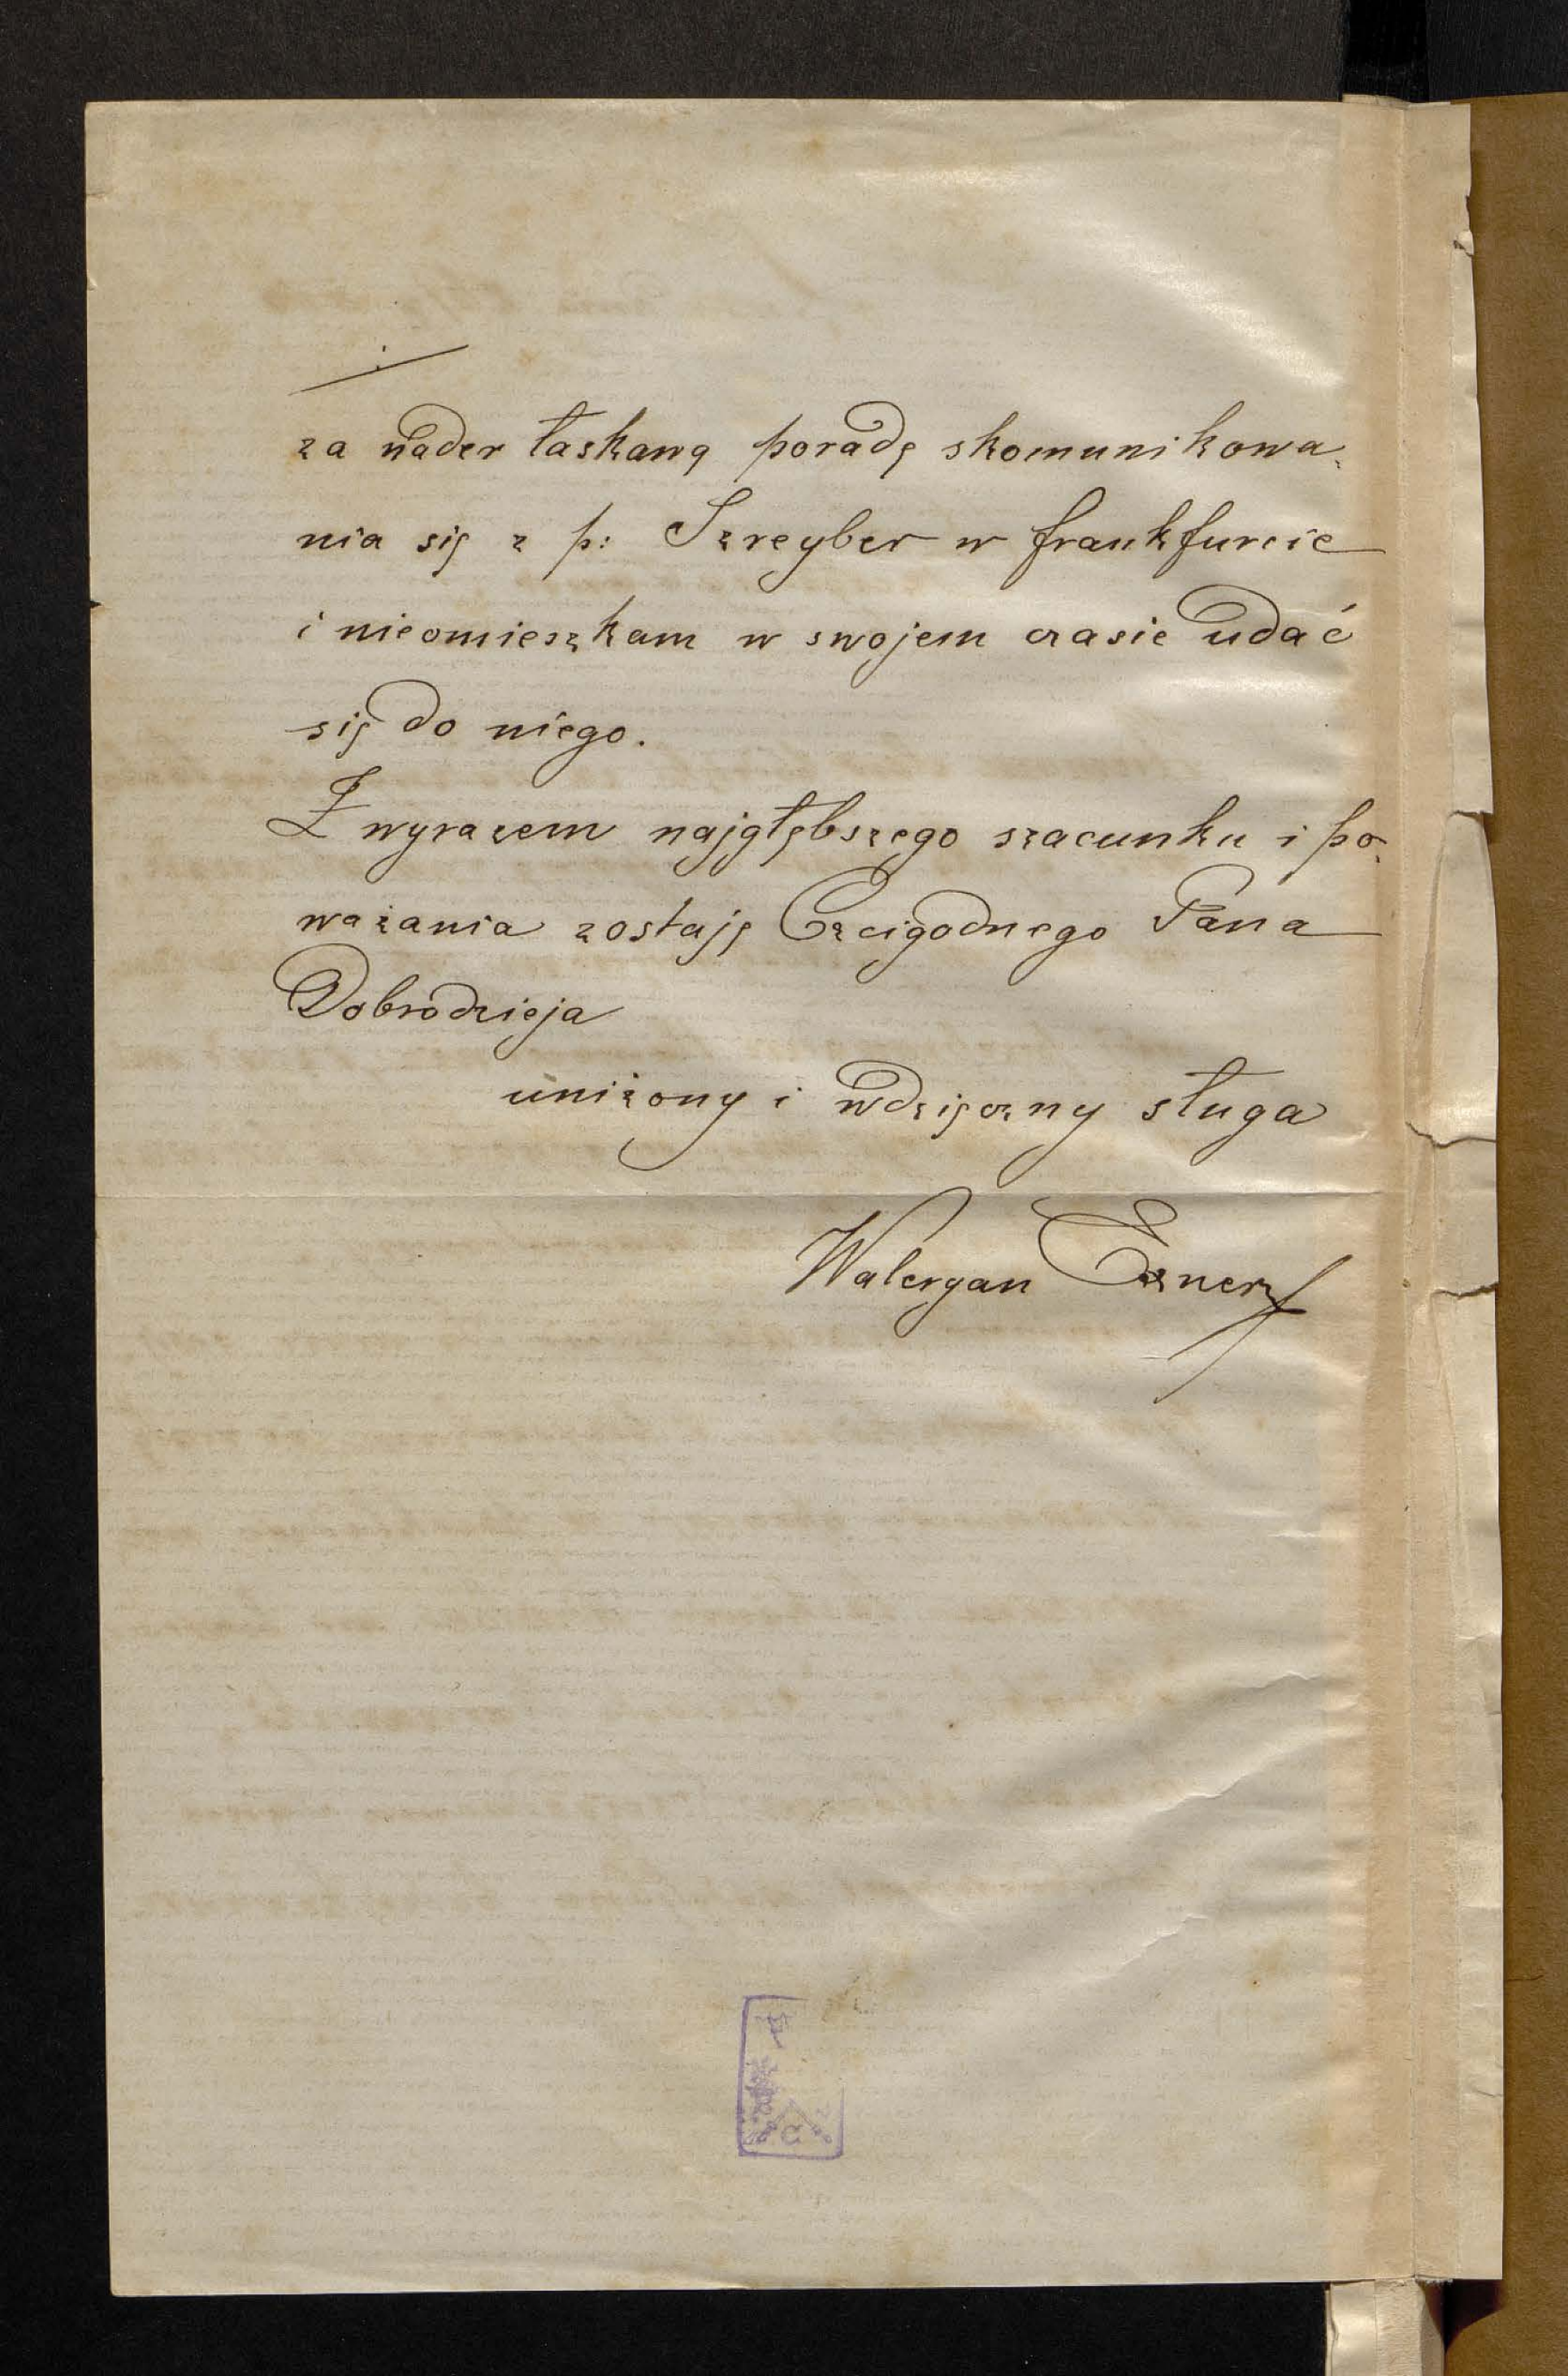 za nader łaskawą poradę skomunikowa-
nia się z p: Szreyber w frankfurcie
i nieomieszkam w swojem czasie udać
się do niego.
Z wyrazem najgłębszego szacunku i po-
ważania zostaję Czcigodnego Pana
Dobrodzieja
uniżony i wdzięczny sługa
Waleryan